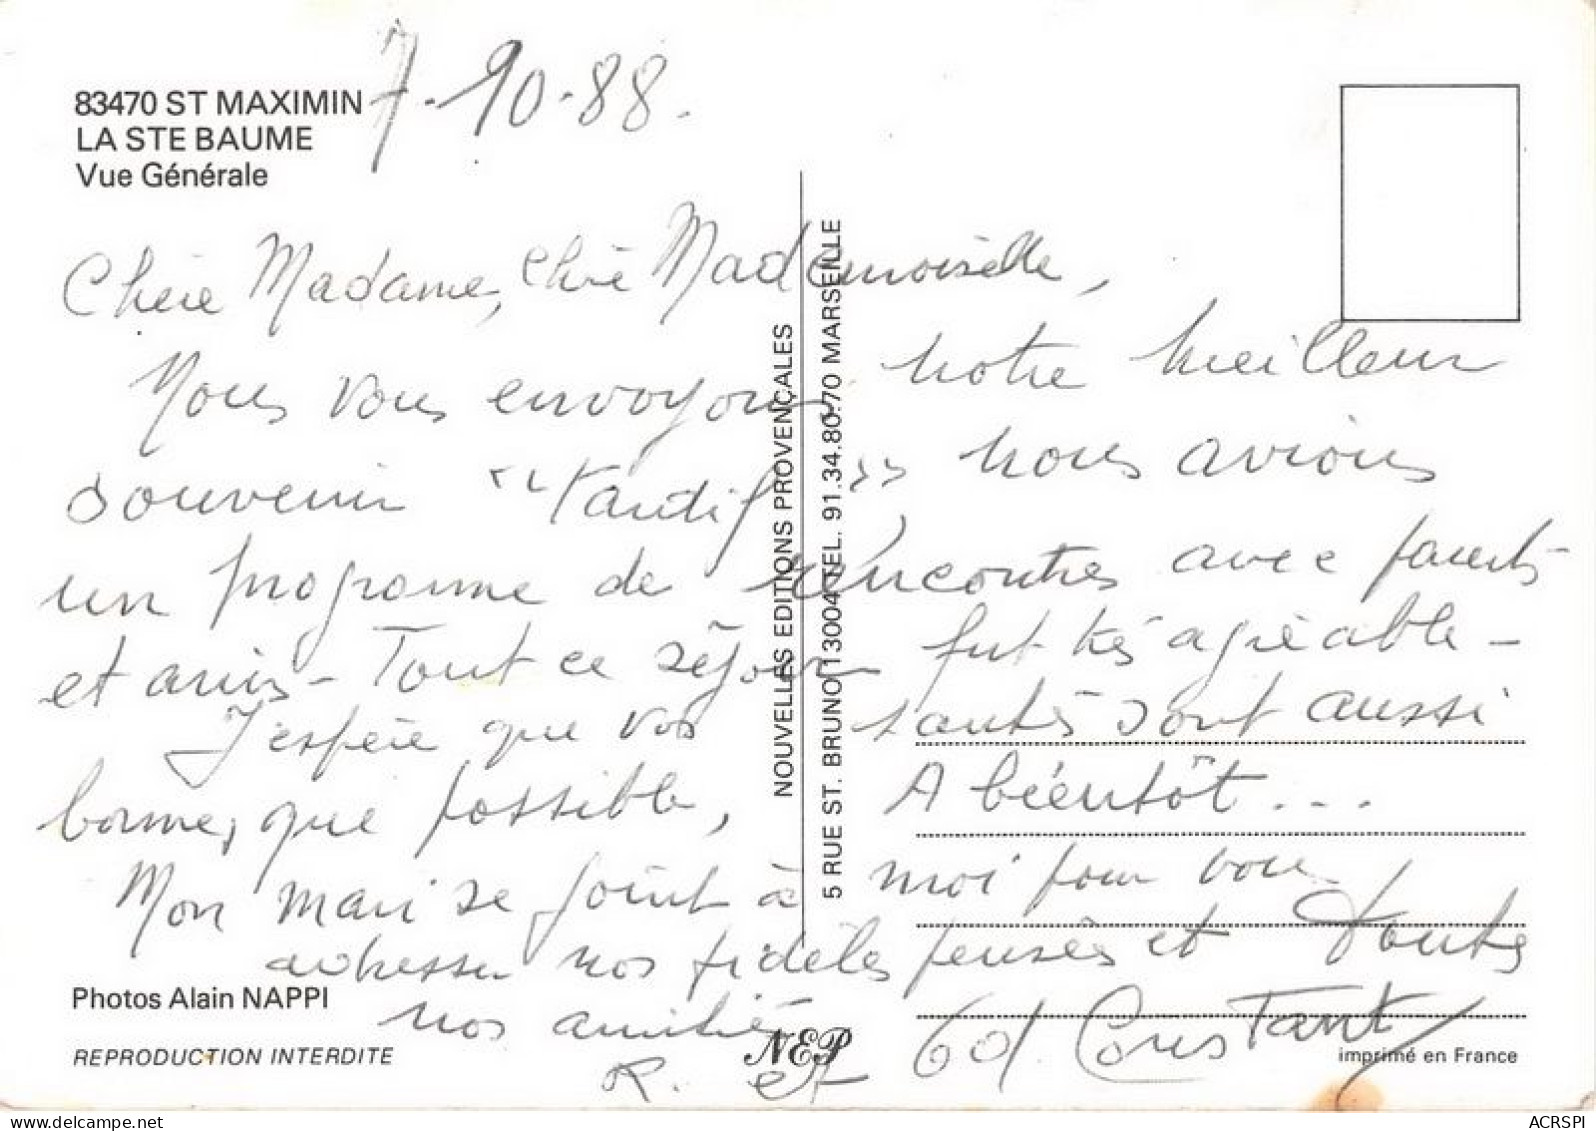 7-10-88.
83470 ST MAXIMIN
LA STE BAUME
Vue Générale
Chère Madame, Chère Mademoiselle,
Nous vous envoyons notre meilleur
souvenir "tardif" nous avions
un programme de rencontres avec parents
et amis - Tout ce séjour fut très agréable -
J'espère que vos santés sont aussi
bonnes, que possible, A bientôt...
Mon mari se joint à moi pour vous
adresser nos fidèles pensées et toutes
nos amitiés
R. et Constant
NOUVELLES EDITIONS PROVENÇALES
5 RUE ST. BRUNO 13004 TEL. 91.34.80.70 MARSEILLE
Photos Alain NAPPI
REPRODUCTION INTERDITE
NEP
imprimé en France
ACRSPI